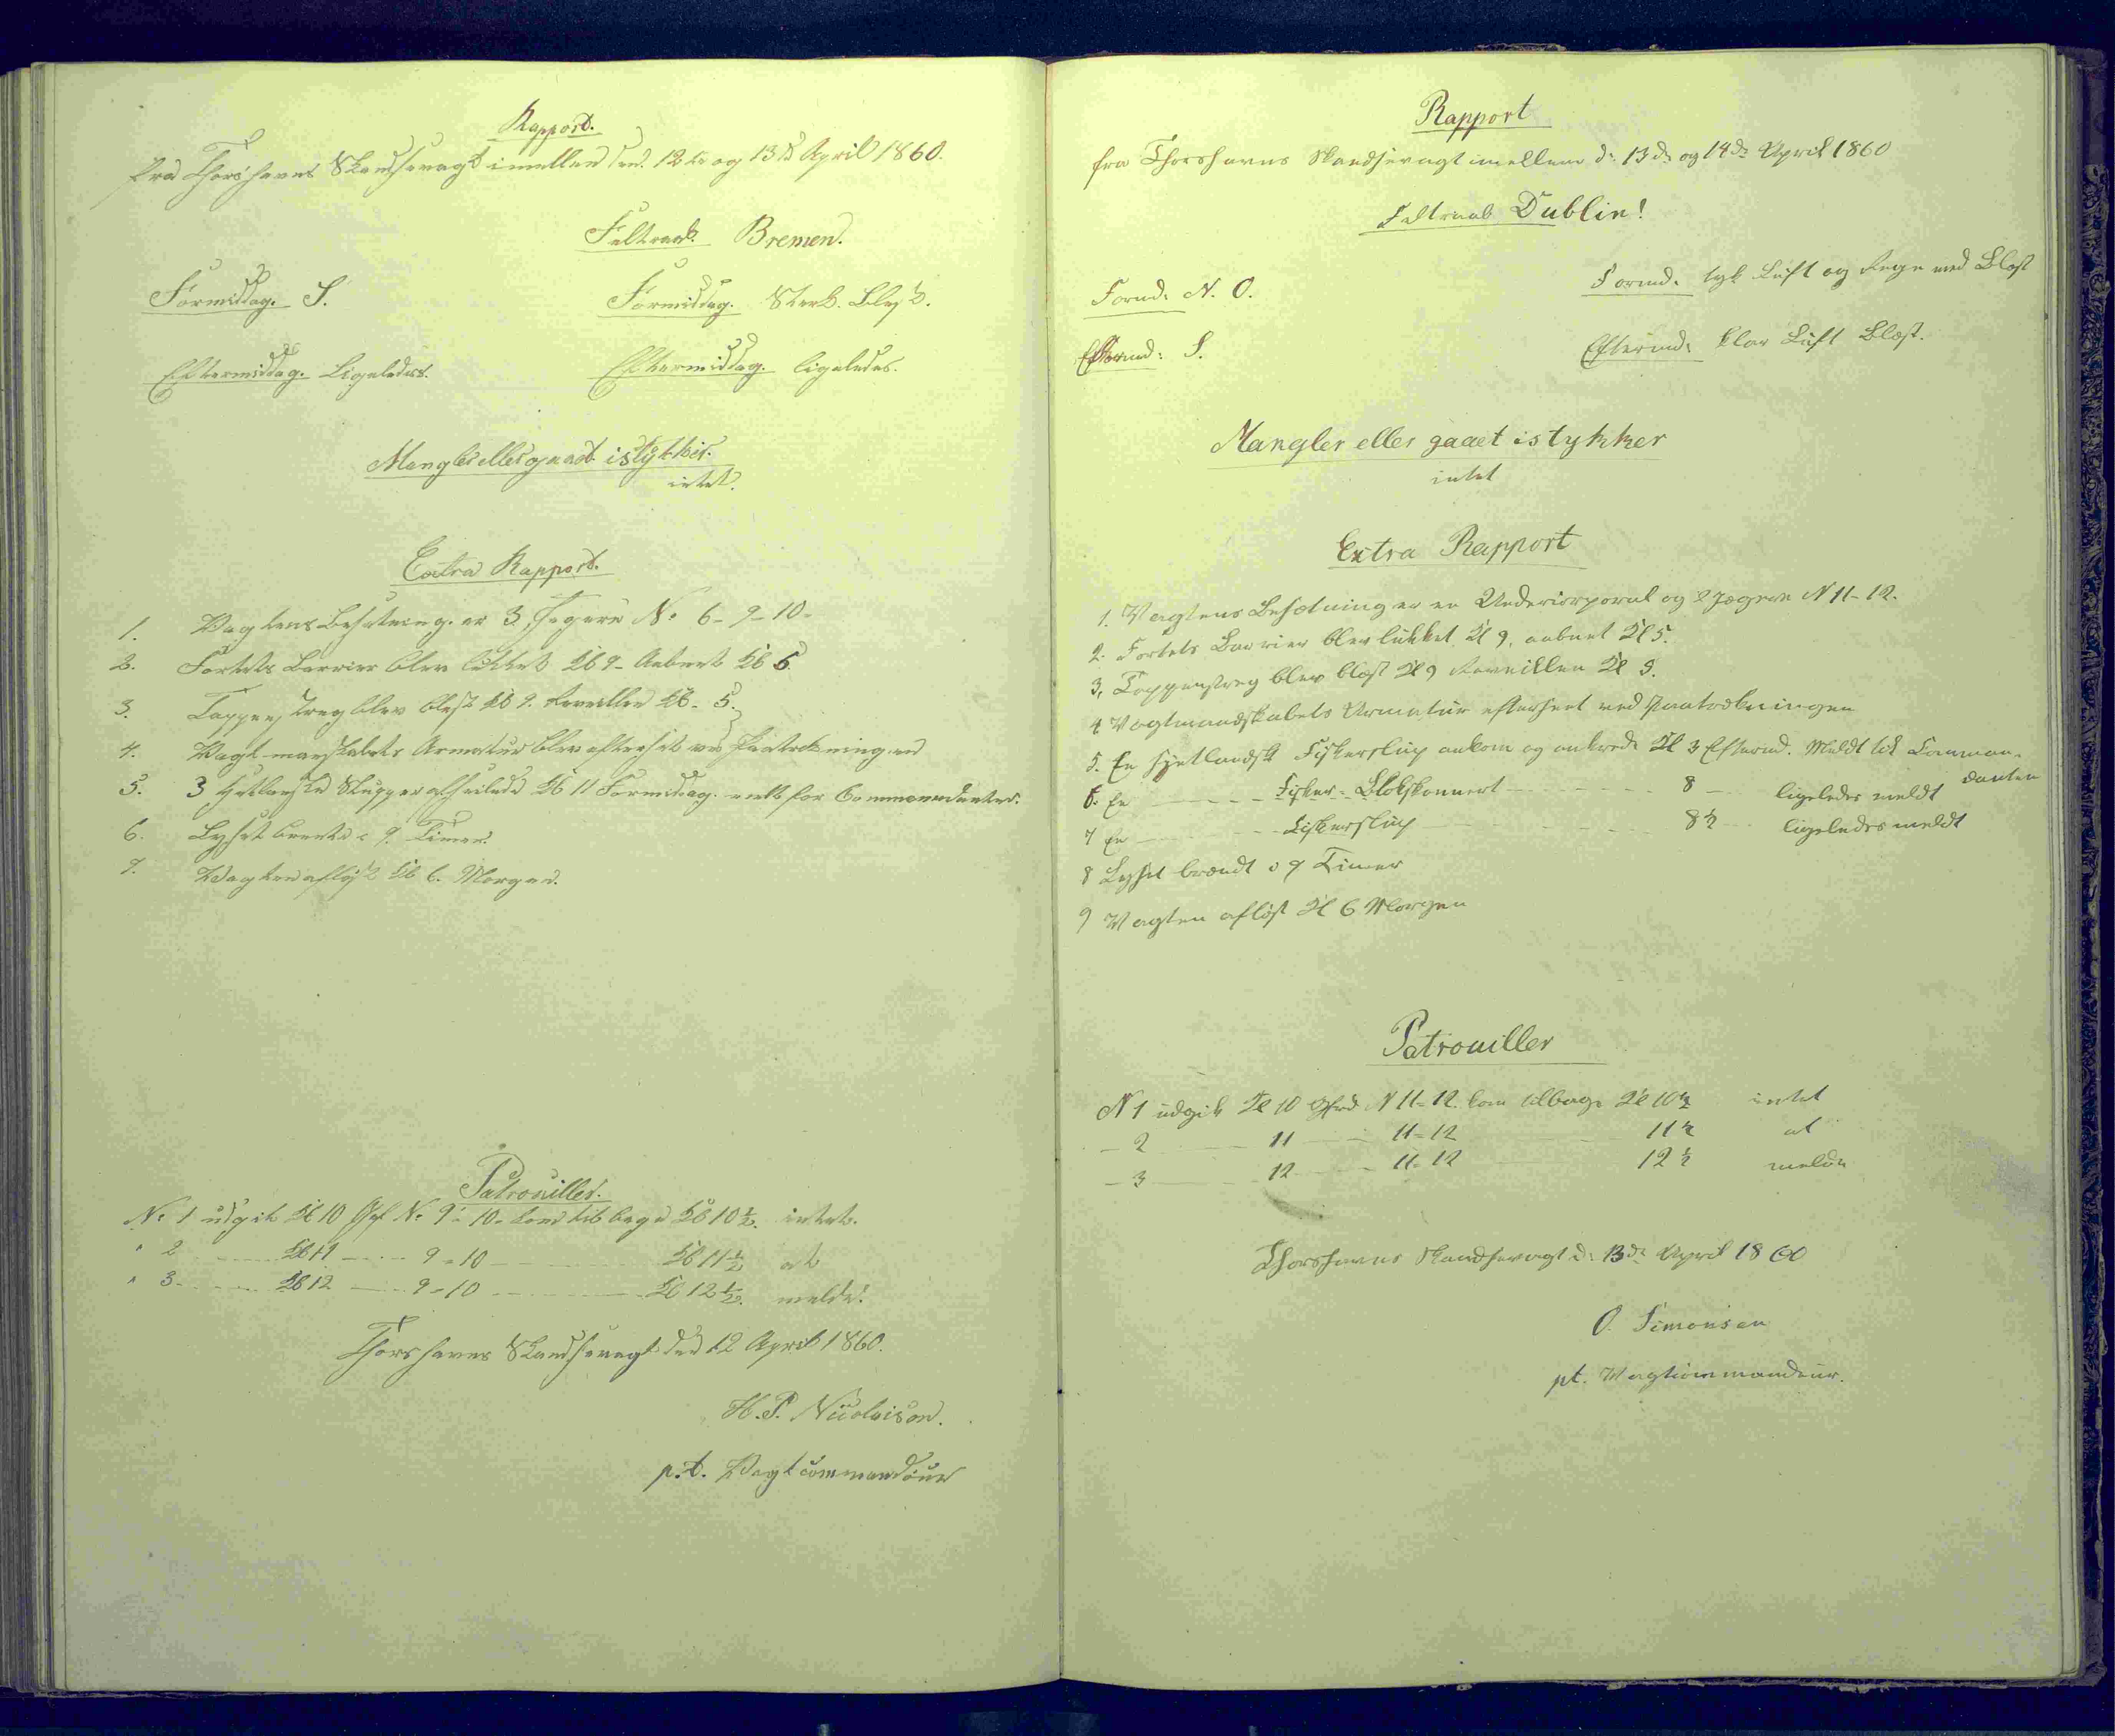 Rapport.
fra Thorshavns Skandsevagt imellem den 12te og 13de April 1860.
Feltraab. Bremen.
Formiddag. S. Formiddag. Sterk. Blest.
Eftermiddag. Ligeledes. Eftermiddag. ligeledes.
Mangler eller gaaet istykker.
intet.
Extra Rapport.
1. Vagtens Besetning. er 3 Jægere No 6-9-10-
2. Fortets Barrier blev lukket Kl 9- Aabnet Kl 5
3. Tappenstreg blev blest Kl 9. Reveillen Kl- 5.
4. Vagt-manskabets Armatur blev efterset ved Paatrekningen
5. 3 Hetlanske Slupper afseilede Kl 11 Formiddag. melt for Commomendanten.
6. Lyset brente i 9. Timer.
7. Vagten aflöst Kl 6. Morgen.
Patrouiller.
No 1 udgik Kl 10 Gef No 9-10- kom tilbage Kl 10½. intet.
" 2 Kl 11 9-10 Kl 11½ at
" 3 Kl 12 9-10 Kl 12½. melde.
Thorshavns Skandsevagt den 12 April 1860.
H. P. Nicolaisen.
p.t. Vagtcommandeur
Rapport
fra Thorshavns Skandsevagt imellem d: 13de og 14de April 1860
Feltraab Dublin!
Formd: N. O. Formd: tyk Luft og Regn med Blæst
Eftermd: S. Eftermd: klar Luft Blæst.
Mangler eller gaaet istykker
intet
Extra Rapport
1. Vagtens Besætning er en Undercorporal og 2 Jægere N 11-12.
2. Fortets Barrier blev lukket Kl 9, aabnet Kl 5.
3. Tappenstreg blev blæst Kl 9 Reveillen Kl 5.
4 Vagtmandskabets Armatur efterseet ved Paatrækningen
5. En hjetlandsk Fiskerslup ankom og ankrede Kl 3 Eftermd. Meldt til Comman-
danten
6. En Fisker-Klokskonnert 8 ligeledes meldt
7 En Fiskerslup 8½ ligeledes meldt
8 Lyset brændt i 9 Timer
9 Vagten afløst Kl 6 Morgen
Patrouiller
N 1 udgik Kl 10 Gefrd N 11-12. kom tilbage Kl 10½ intet
- 2 11 11-12 11½ at
- 3 12 11-12 12½ melde
Thorshavns Skandsevagt d: 13de April 1860
O. Simonsen
pt. Vagtcommandeur.